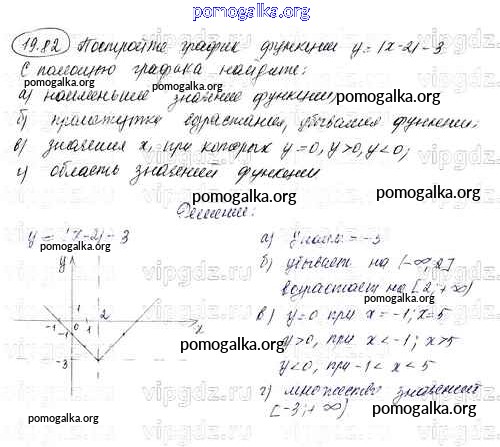 pomogalka.org
19.82 Постройте график функции y = |x-2| - 3
С помощью графика найдите:
а) наименьшее значение функции;
pomogalka.org
б) промежутки возрастания, убывания функции;
pomogalka.org
в) значения x, при которых y=0, y>0, y<0;
pomogalka.org
г) область значений функции
pomogalka.org
Решение:
y = |x-2| - 3
pomogalka.org
y
1
2
-1 0 1 x
-1
-3
pomogalka.org
а) y наим = -3
б) убывает на (-∞; 2]
pomogalka.org
возрастает на [2; +∞)
в) y=0 при x = -1; x=5
y>0, при x < -1; x>5
pomogalka.org
y<0, при -1 < x < 5
г) множество значений
[-3; +∞)
pomogalka.org
vipgdz.ru
pomogalka.org